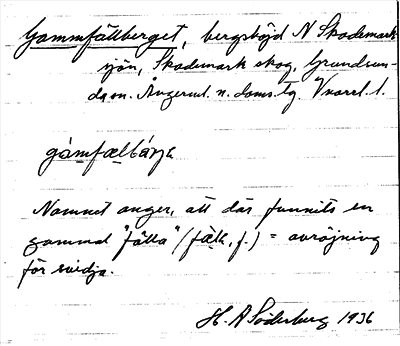 Gammfällberget, bergshöjd N Skademark
sjön, Skademark skog, Grundsun-
da sn. Ångerml. n. doms. tg. V norrl. l.
gàmfælbǽrjɛ
Namnet anger, att där funnits en
gammal "fälla" (fæll, f.) = avröjning
för svedja.
H. A Söderberg 1936